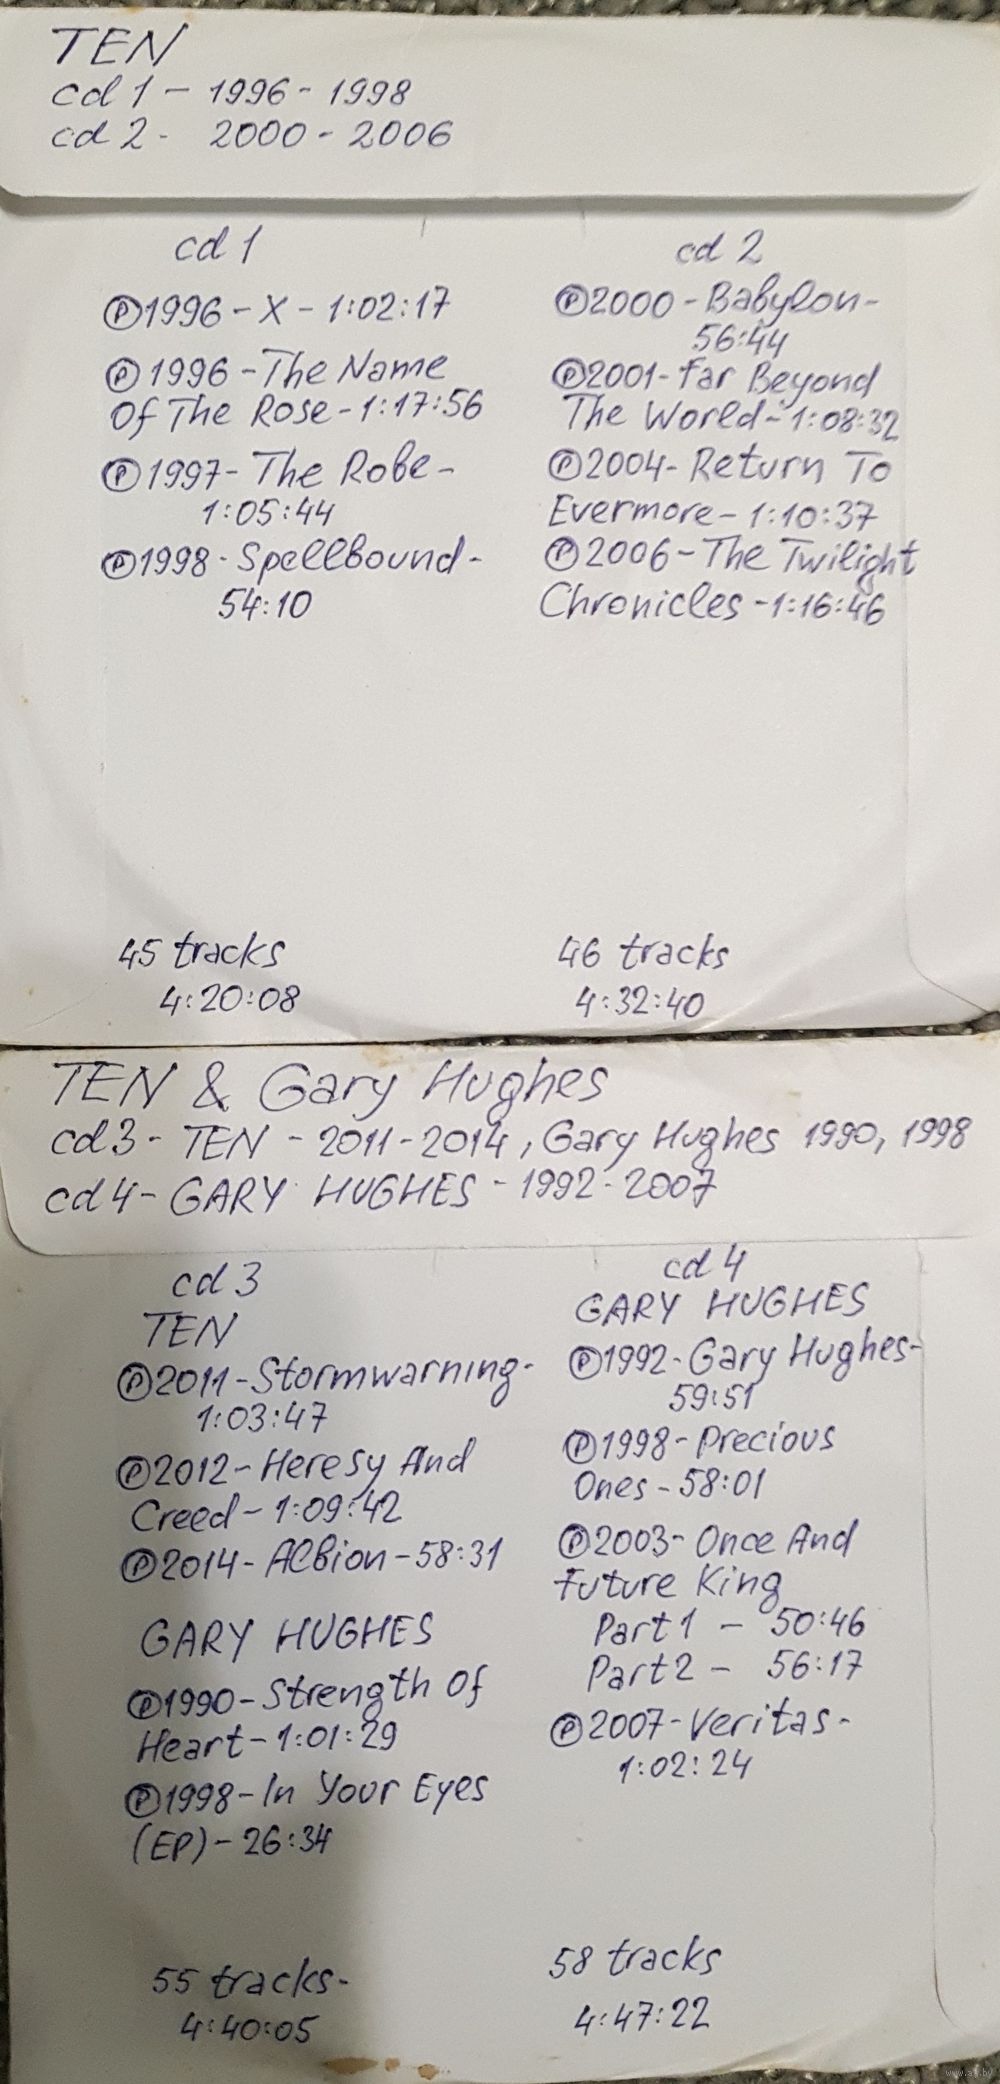 TEN
cd 1 - 1996 - 1998
cd 2 - 2000 - 2006
cd 1
Ⓟ1996 - X - 1:02:17
Ⓟ 1996 - The Name
Of The Rose - 1:17:56
Ⓟ1997 - The Robe -
1:05:44
Ⓟ1998 - Spellbound -
54:10
45 tracks
4:20:08
cd 2
Ⓟ2000 - Babylon -
56:44
Ⓟ2001 - Far Beyond
The World - 1:08:32
Ⓟ2004 - Return To
Evermore - 1:10:37
Ⓟ2006 - The Twilight
Chronicles - 1:16:46
46 tracks
4:32:40
TEN & Gary Hughes
cd 3 - TEN - 2011 - 2014, Gary Hughes 1990, 1998
cd 4 - GARY HUGHES - 1992 - 2007
cd 3
TEN
Ⓟ2011 - Stormwarning -
1:03:47
Ⓟ2012 - Heresy And
Creed - 1:09:42
Ⓟ2014 - Albion - 58:31
GARY HUGHES
Ⓟ1990 - Strength Of
Heart - 1:01:29
Ⓟ1998 - In Your Eyes
(EP) - 26:34
55 tracks -
4:40:05
cd 4
GARY HUGHES
Ⓟ1992 - Gary Hughes -
59:51
Ⓟ1998 - Precious
Ones - 58:01
Ⓟ2003 - Once And
Future King
Part 1 - 50:46
Part 2 - 56:17
Ⓟ2007 - Veritas -
1:02:24
58 tracks
4:47:22
www.ay.by